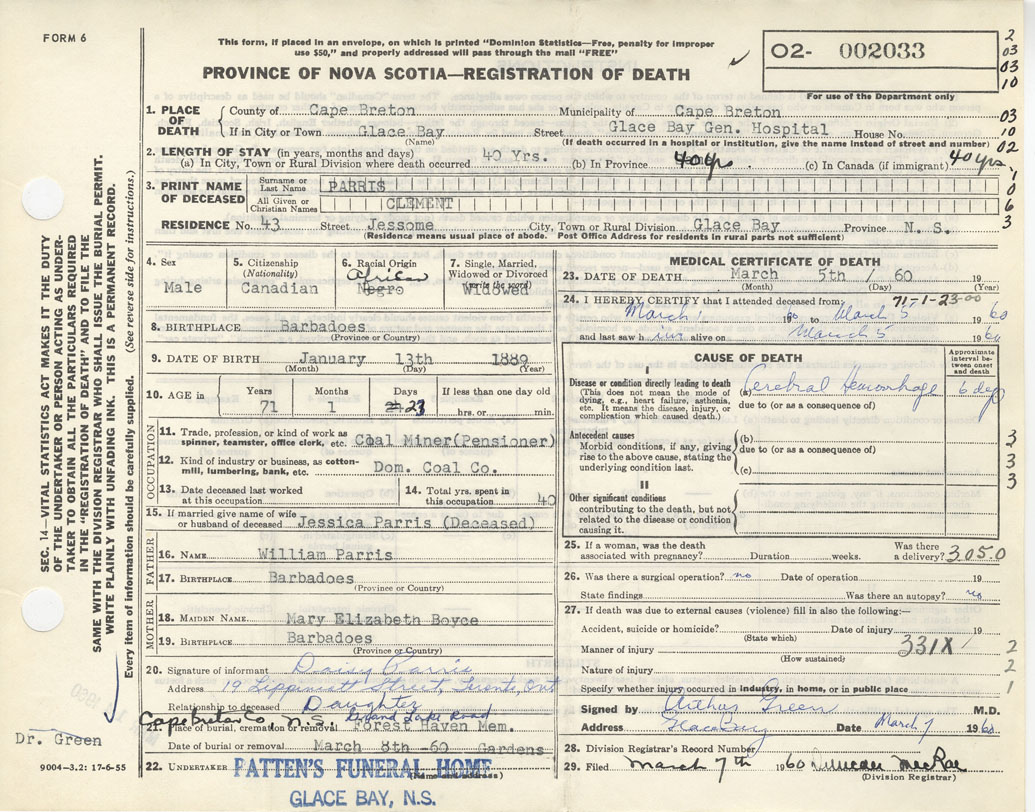 FORM 6
This form, if placed in an envelope, on which is printed "Dominion Statistics—Free, penalty for improper
use $50," and properly addressed will pass through the mail "FREE"
PROVINCE OF NOVA SCOTIA—REGISTRATION OF DEATH
02- 002033
For use of the Department only
2
03
03
10
03
10
02
0
6
3
SEC. 14—VITAL STATISTICS ACT MAKES IT THE DUTY
OF THE UNDERTAKER OR PERSON ACTING AS UNDER-
TAKER TO OBTAIN ALL THE PARTICULARS REQUIRED
IN THE "REGISTRATION OF DEATH" AND TO FILE THE
SAME WITH THE DIVISION REGISTRAR WHO SHALL ISSUE THE BURIAL PERMIT.
WRITE PLAINLY WITH UNFADING INK. THIS IS A PERMANENT RECORD.
Every item of information should be carefully supplied. (See reverse side for instructions.)
1. PLACE OF DEATH
County of Cape Breton Municipality of Cape Breton
If in City or Town Glace Bay Street Glace Bay Gen. Hospital House No.
(Name) (If death occurred in a hospital or institution, give the name instead of street and number)
2. LENGTH OF STAY (in years, months and days)
(a) In City, Town or Rural Division where death occurred 40 Yrs. (b) In Province 40 yrs (c) In Canada (if immigrant) 40 yrs
3. PRINT NAME OF DECEASED
Surname or Last Name PARRIS
All Given or Christian Names CLEMENT
RESIDENCE No. 43 Street Jessome City, Town or Rural Division Glace Bay Province N. S.
(Residence means usual place of abode. Post Office Address for residents in rural parts not sufficient)
4. Sex
Male
5. Citizenship
(Nationality)
Canadian
6. Racial Origin
African
Negro
7. Single, Married,
Widowed or Divorced
(write the word)
Widowed
8. BIRTHPLACE Barbadoes
(Province or Country)
9. DATE OF BIRTH January 13th 1889
(Month) (Day) (Year)
10. AGE in
Years Months Days If less than one day old
71 1 23 hrs. or min.
OCCUPATION
11. Trade, profession, or kind of work as
spinner, teamster, office clerk, etc. Coal Miner(Pensioner)
12. Kind of industry or business, as cotton-
mill, lumbering, bank, etc. Dom. Coal Co.
13. Date deceased last worked
at this occupation
14. Total yrs. spent in
this occupation 40
15. If married give name of wife
or husband of deceased Jessica Parris (Deceased)
FATHER
16. NAME William Parris
17. BIRTHPLACE Barbadoes
(Province or Country)
MOTHER
18. MAIDEN NAME Mary Elizabeth Boyce
19. BIRTHPLACE Barbadoes
(Province or Country)
20. Signature of informant Daisy Parris
Address 19 Lippincott Street, Toronto, Ont
Relationship to deceased Daughter
Cape Breton Co, N.S. Grand Lake Road
21. Place of burial, cremation or removal Forest Haven Mem.
Date of burial or removal March 8th -60 Gardens
22. UNDERTAKER PATTEN'S FUNERAL HOME
(Name and address)
GLACE BAY, N.S.
Dr. Green
9004—3.2: 17-6-55
MEDICAL CERTIFICATE OF DEATH
23. DATE OF DEATH March 5th / 60 19
(Month) (Day) (Year)
71-1-23-00
24. I HEREBY CERTIFY that I attended deceased from:
March 1 1960 to March 5 1960
and last saw him alive on March 5 1960
CAUSE OF DEATH
Approximate
interval be-
tween onset
and death
I
Disease or condition directly leading to death
(This does not mean the mode of
dying, e.g., heart failure, asthenia,
etc. It means the disease, injury, or
complication which caused death.)
(a) Cerebral Hemorrhage 6 days
due to (or as a consequence of)
Antecedent causes
Morbid conditions, if any, giving
rise to the above cause, stating the
underlying condition last.
(b)
due to (or as a consequence of)
(c)
3
3
3
II
Other significant conditions
contributing to the death, but not
related to the disease or condition
causing it.
25. If a woman, was the death
associated with pregnancy? Duration weeks. Was there
a delivery? 3050
26. Was there a surgical operation? no Date of operation 19
State findings Was there an autopsy? no
27. If death was due to external causes (violence) fill in also the following:—
Accident, suicide or homicide? Date of injury 19
(State which)
Manner of injury 331X
(How sustained)
Nature of injury
2
2
1
Specify whether injury occurred in industry, in home, or in public place
Signed by Arthur Green M.D.
Address Glace Bay Date March 7 1960
28. Division Registrar's Record Number
29. Filed March 7th 1960 Duncan MacRae
(Division Registrar)